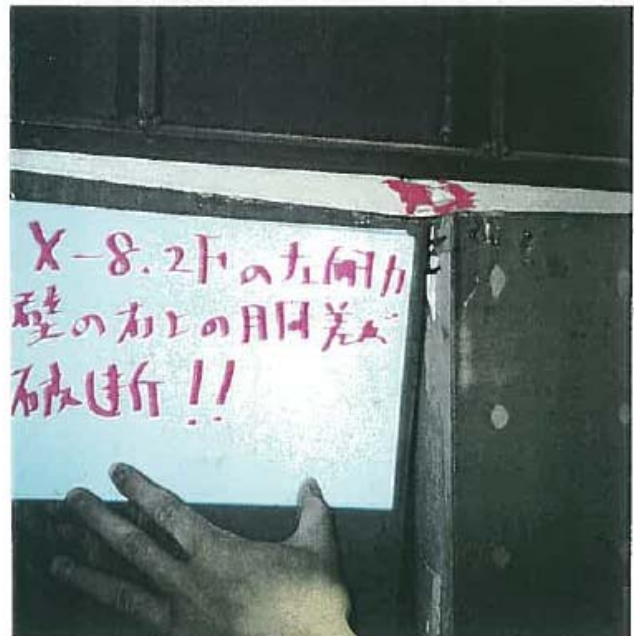 X-8.2Fの左側力
壁の右上の胴差が
破断!!